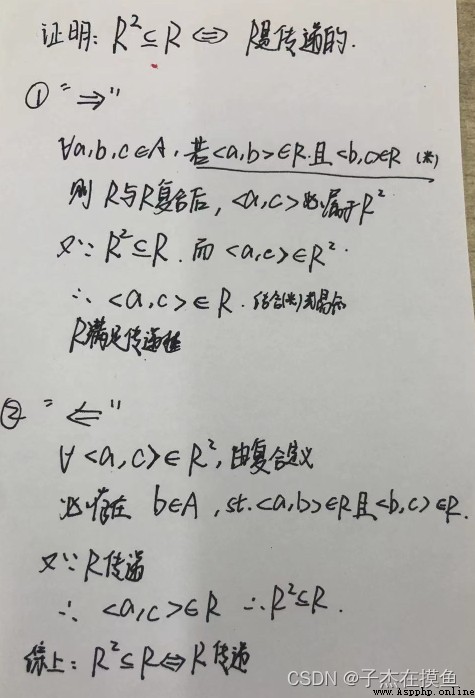 证明: R²⊆R ⇔ R是传递的.
① "⇒"
∀a,b,c∈A, 若<a,b>∈R.且<b,c>∈R (*)
则 R与R复合后, <a,c>必属于R²
又∵ R²⊆R. 而 <a,c>∈R².
∴ <a,c>∈R. 结合(*)式易知
R满足传递性
② "⇐"
∀<a,c>∈R², 由复合定义
必存在 b∈A, st.<a,b>∈R且<b,c>∈R.
又∵R传递
∴ <a,c>∈R ∴R²⊆R.
综上: R²⊆R⇔R传递
CSDN @子杰在摸鱼
www.Aspphp.online